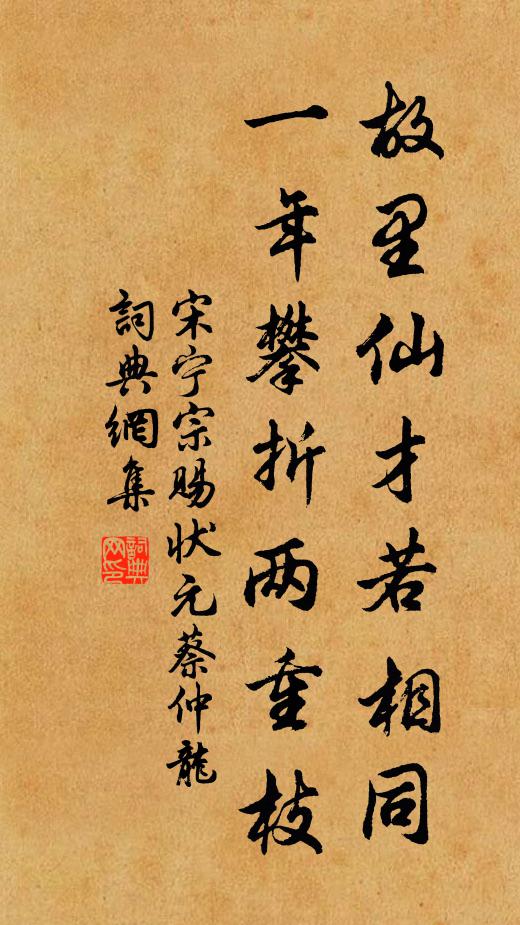 故里仙才若相同
一年攀折两重枝
宋宁宗賜状元蔡仲龍
詞典網集
詞典
网印